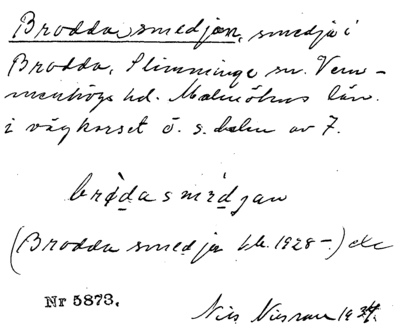 Brodda smedjan, smedja i
Brodda, Slimminge sn. Vem-
menhögs hd. Malmöhus län.
i vägkorset ö. s. delen av 7.
bròda smedjan
(Brodda smedja bb. 1928-) etc
Nr 5873.
Nils 1934.